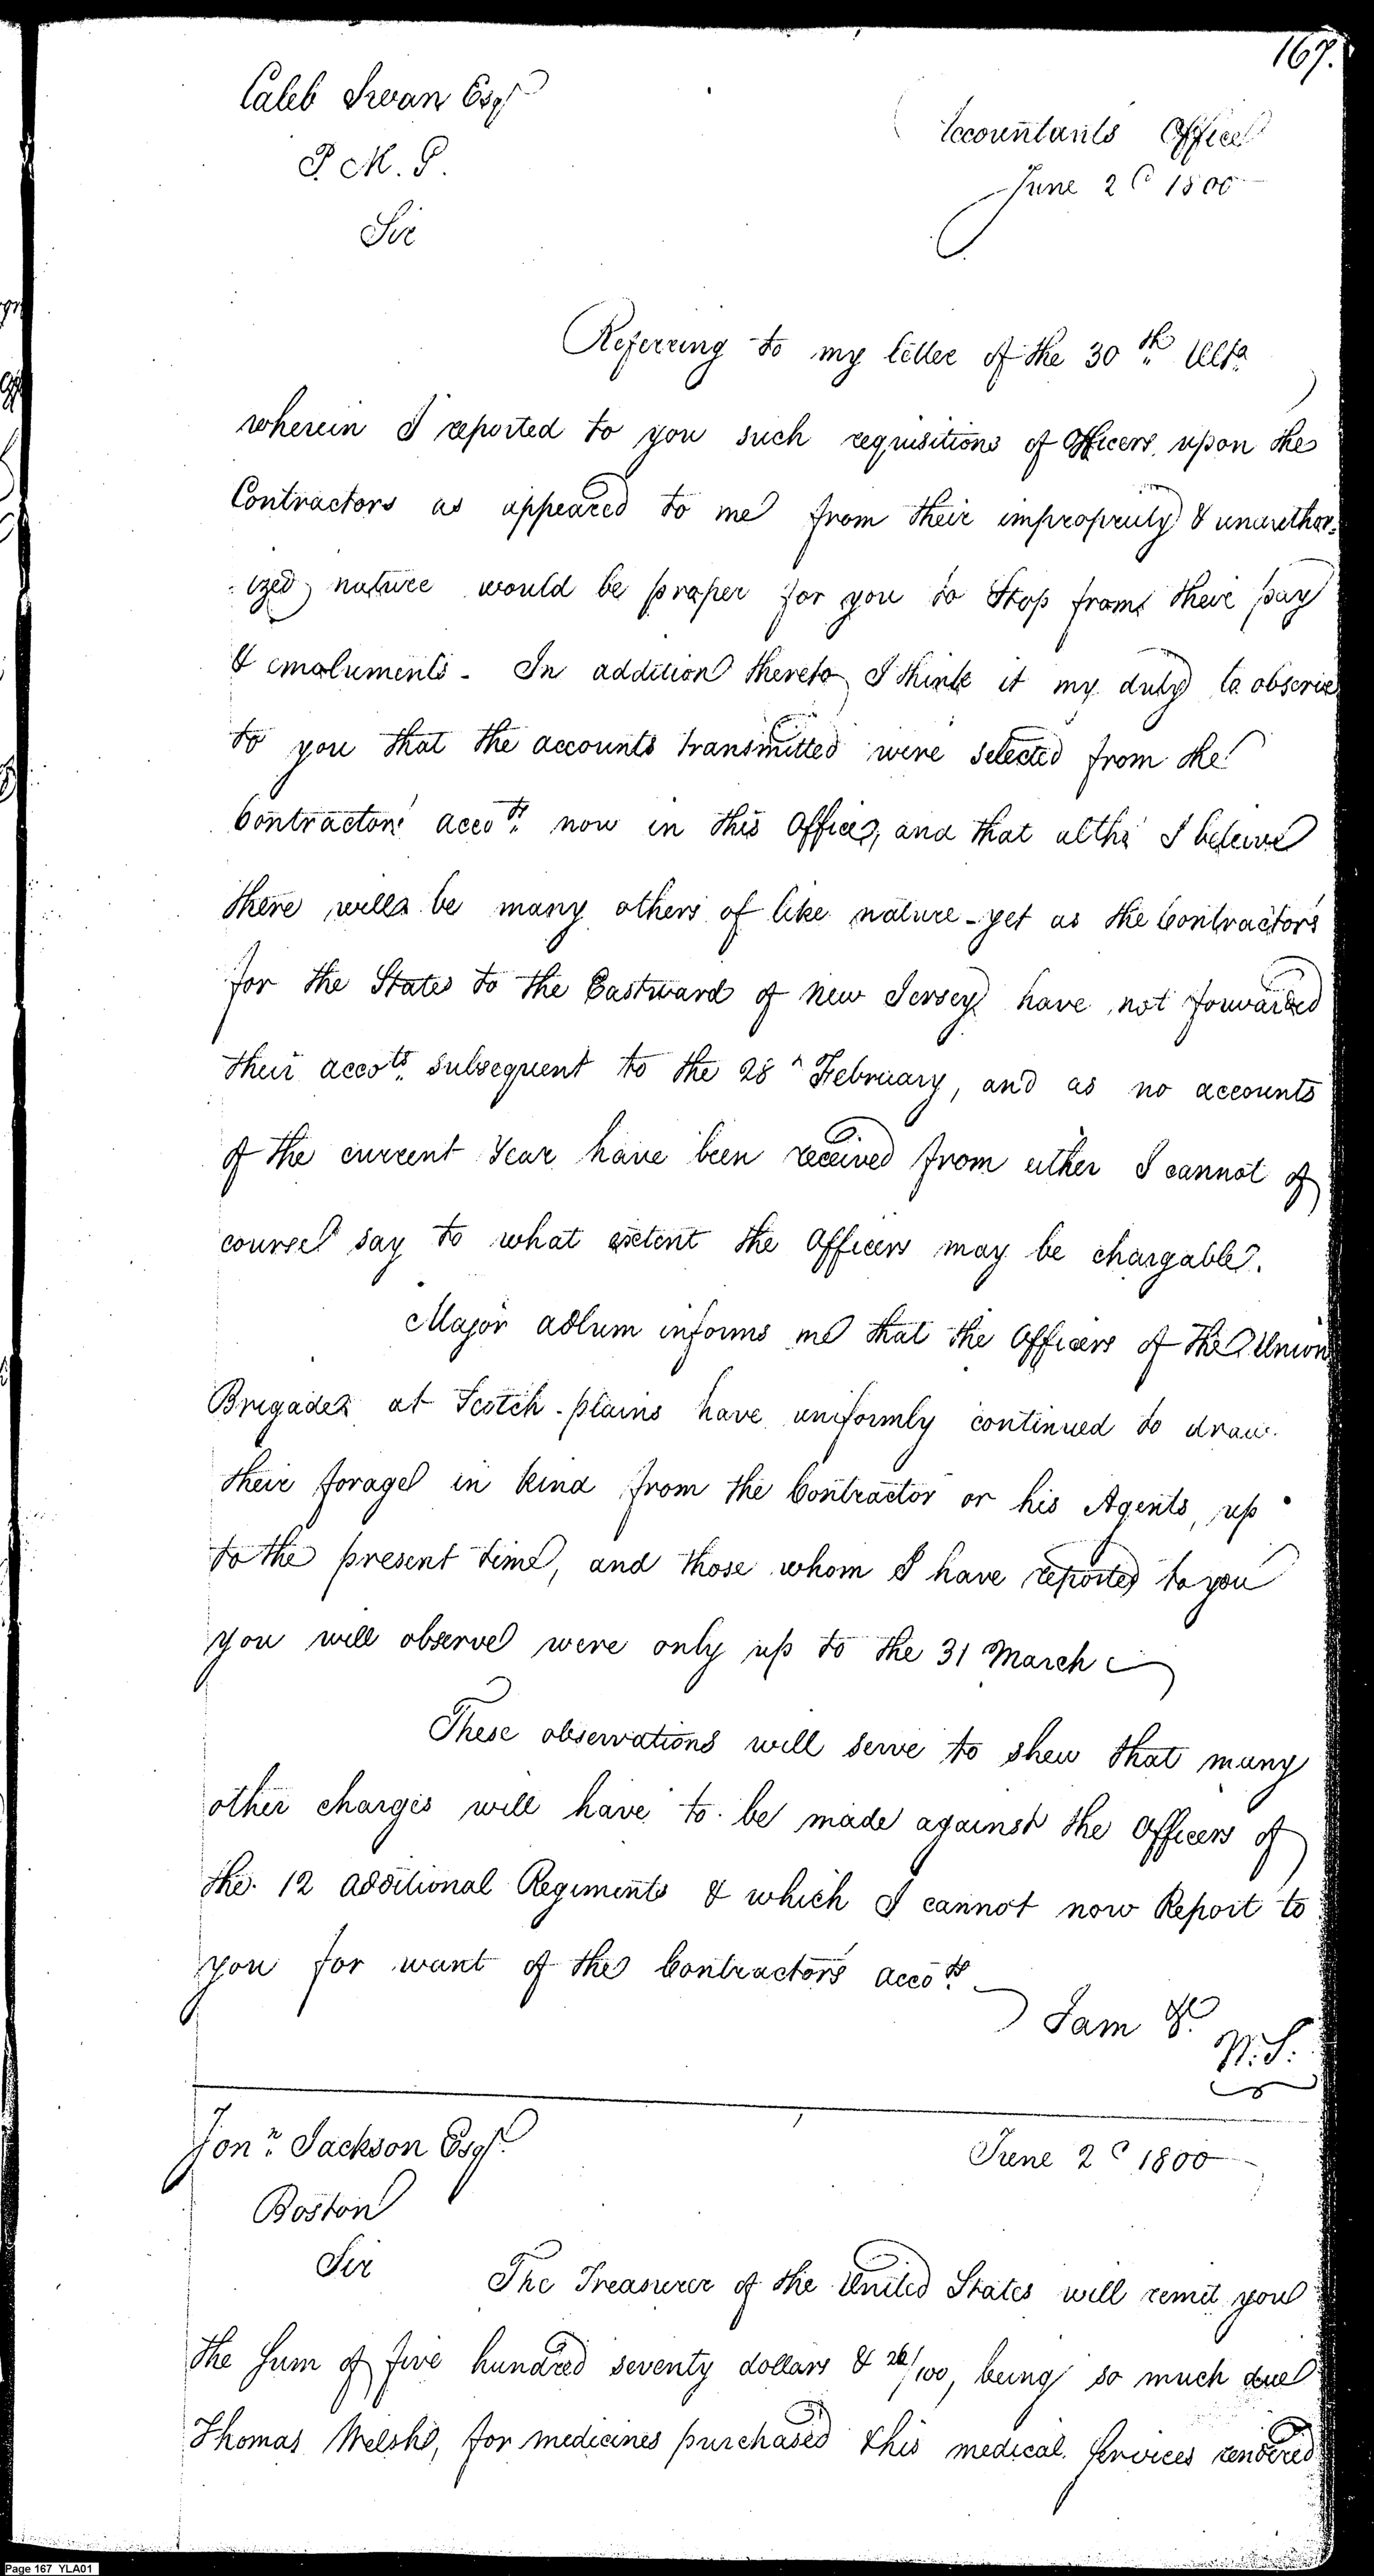 167.
Caleb Swan Esqr
P. M. G.
Accountants Office
June 2d 1800
Sir
Referring to my letter of the 30th Ulto
wherein I reported to you such requisitions of Officers upon the
Contractors as appeared to me from their impropriety & unauthor-
-ized nature would be proper for you to Stop from their pay
& emoluments - In addition thereto I think it my duty to observe
to you that the accounts transmitted were selected from the
Contractors' accots now in this Office, and that altho' I beleive
there will be many others of like nature - yet as the Contractors
for the States to the Eastward of New Jersey have not forwarded
their accots subsequent to the 28h February, and as no accounts
of the current Year have been received from either I cannot of
course say to what extent the Officers may be chargable.
Major Adlum informs me that the Officers of the Union
Brigade at Scotch-plains have uniformly continued to draw
their forage in kind from the Contractor or his Agents, up
to the present time, and those whom I have reported to you
you will observe were only up to the 31 March
These observations will serve to shew that many
other charges will have to be made against the Officers of
the 12 additional Regiments & which I cannot now Report to
you for want of the Contractors accots
I am &c.
W. S.
Jonn Jackson Esqr.
June 2d 1800
Boston
Sir
The Treasurer of the United States will remit you
the Sum of five hundred seventy dollars & 26/100, being so much due
Thomas Welsh, for medicines purchased & his medical Services rendered
Page 167 YLA01